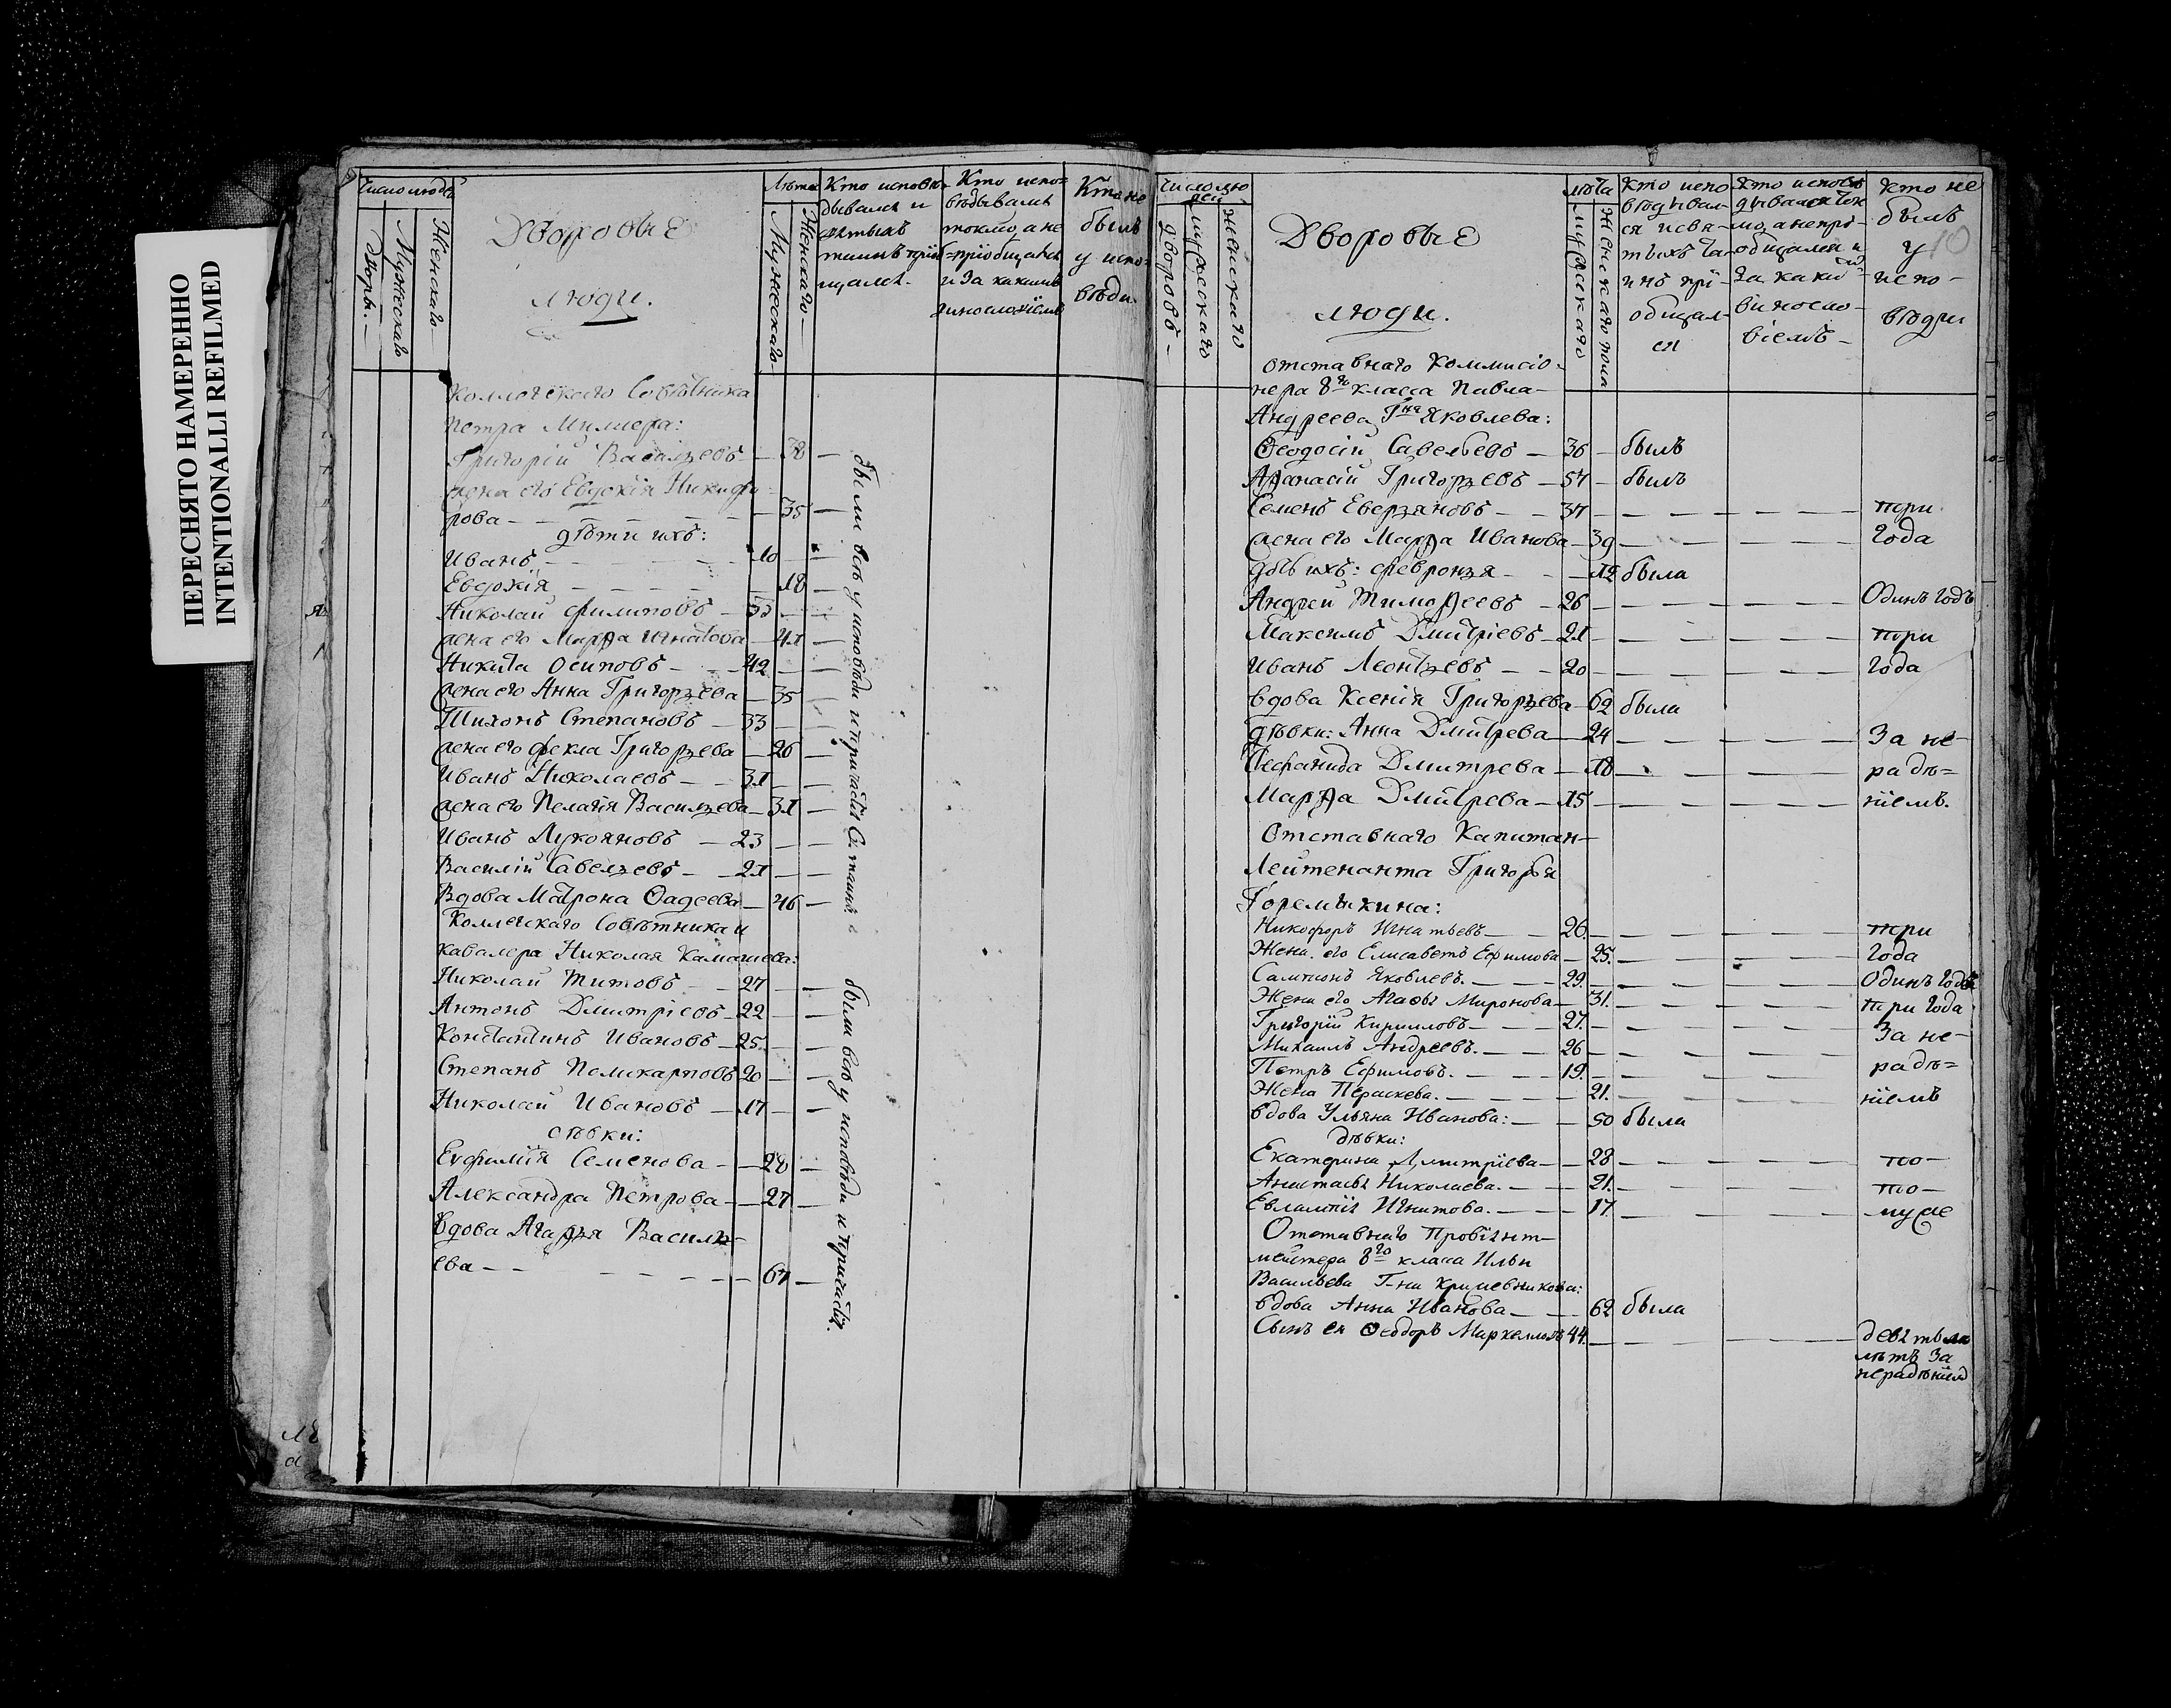 ПЕРЕСНЯТО НАМЕРЕННО
INTENTIONALLI REFILMED
Число людей
Дворы.
Мужескаго
Женскаго
Дворовые
люди.
Лѣта
Мужескаго
Женскаго
Кто исповѣ-
дывался и
святыхъ
таинъ прiоб
щался.
Кто испо=
вѣдывался
токмо, а не
=прiобщался
и за какимъ
винословiемъ
Кто не
былъ
у испо=
вѣди.
Коллежскаго Совѣтника
Петра Миллера:
Григорiй Васильевъ — 38 —
жена его Евдокiя Никифо-
рова — 35 —
дѣти ихъ:
Иванъ — 10 —
Евдокiя — 18 —
Николай Филиповъ — 33 —
жена его Марѳа Игнатова — 41 —
Никита Осиповъ — 42 —
жена его Анна Григорьева — 35 —
Тихонъ Степановъ — 33 —
жена его Фекла Григорьева — 26 —
Иванъ Николаевъ — 31 —
жена его Пелагiя Васильева — 31 —
Иванъ Лукояновъ — 23 —
Василiй Савельевъ — 21 —
Вдова Матрона Фадеева — 46 —
были всѣ у исповѣди и причастiя Св. таинъ
Коллежскаго Совѣтника и
кавалера Николая Камашева:
Николай Титовъ — 27 —
Антонъ Дмитрiевъ — 22 —
Константинъ Ивановъ — 25 —
Степанъ Поликарповъ 20 —
Николай Ивановъ — 17 —
дѣвки:
Евфимiя Семенова — 28 —
Александра Петрова — 27 —
Вдова Агафья Василь-
ева — 67 —
были всѣ у исповѣди и причастiя.
Число лю
дей
дворовъ
мужескаго
женскаго
Дворовые
люди.
лѣта
мужскаго
женскаго пола
Кто испо
вѣдывал-
ся и свя-
тыхъ та-
инъ прi-
общал-
ся
Кто исповѣ
дывался ток
мо, а непрi-
общался и
за каким
виносло-
вiемъ —
Кто не
былъ
у
испо-
вѣди
10
отставнаго Коммисiо-
нера 8го класса Павла
Андреева Гна Яковлева:
Ѳеодосiй Савельевъ — 36 — былъ
Афанасiй Григорьевъ — 57 — былъ
Семенъ Еверьяновъ — 37 — три
жена его Марѳа Иванова — 39 — года
дочь ихъ: Февронья — 12 была
Андрей Тимофеевъ — 26 — Одинъ годъ
Максимъ Дмитрiевъ — 21 — три
Иванъ Леонтьевъ — 20 — года
вдова Ксенiя Григорьева — 62 была
дѣвки: Анна Дмитрева — 24 — За не-
Степанида Дмитрева — 18 — радѣ=
Марѳа Дмитрева — 15 — нiемъ.
Отставнаго Капитан-
Лейтенанта Григорья
Горемыкина:
Никифоръ Игнатьевъ — 26. — три
Жена его Елисаветъ Ефимова — 25. — года
Сампсонъ Яковлевъ. — 29. — Одинъ годъ
Жена его Агафья Миронова — 31. — три года
Григорiй Кирилловъ — 27. — За не-
Михаилъ Андреевъ. — 26 — радѣ=
Петръ Ефимовъ. — 19. —
Жена Пераскева. — 21. — нiемъ
вдова Ульяна Иванова: — 50 была
дѣвки:
Екатерина Дмитрiева — 28 — то —
Анастасья Николаева. — 21. — то —
Евлампiя Игнатова. — 17. — муже
Отставнаго Провiант-
мейстера 8го класа Ильи
Васильева Г-на
вдова Анна Иванова — 62 была
Сынъ ея Ѳеодоръ Маркелловъ 44. — девять
лѣтъ за
нерадѣнiемъ